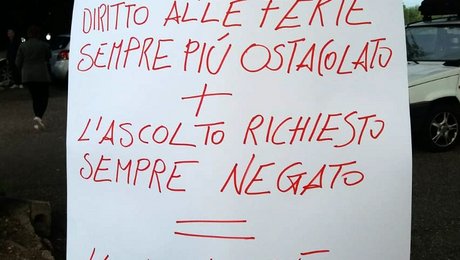 DIRITTO ALLE FERIE
SEMPRE PIÚ OSTACOLATO
+
L'ASCOLTO RICHIESTO
SEMPRE NEGATO
=